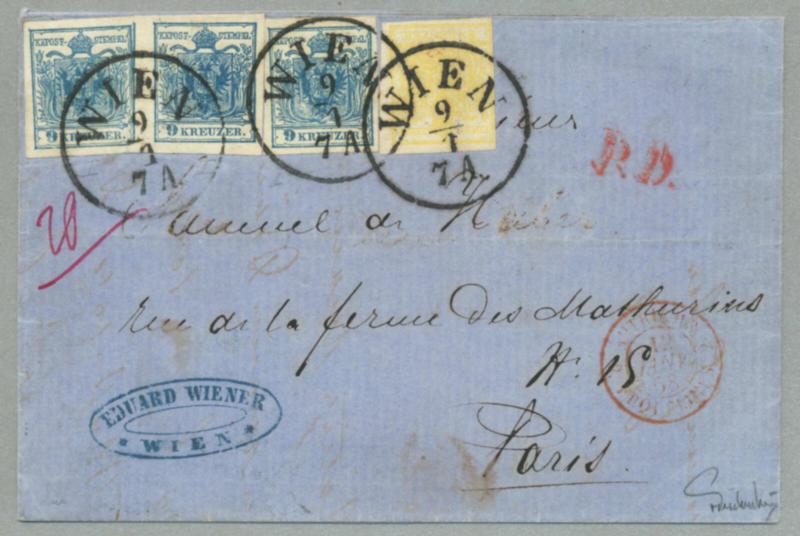 KKPOST-STEMPEL
9 KREUZER.
KKPOST-STEMPEL
9 KREUZER.
KKPOST-STEMPEL
9 KREUZER.
WIEN
9/1
7A
WIEN
9/1
7A
WIEN
9/1
7A
P.D.
20
de
rue de la ferme des Mathurins
No. 15
Paris.
EDUARD WIENER
* WIEN *